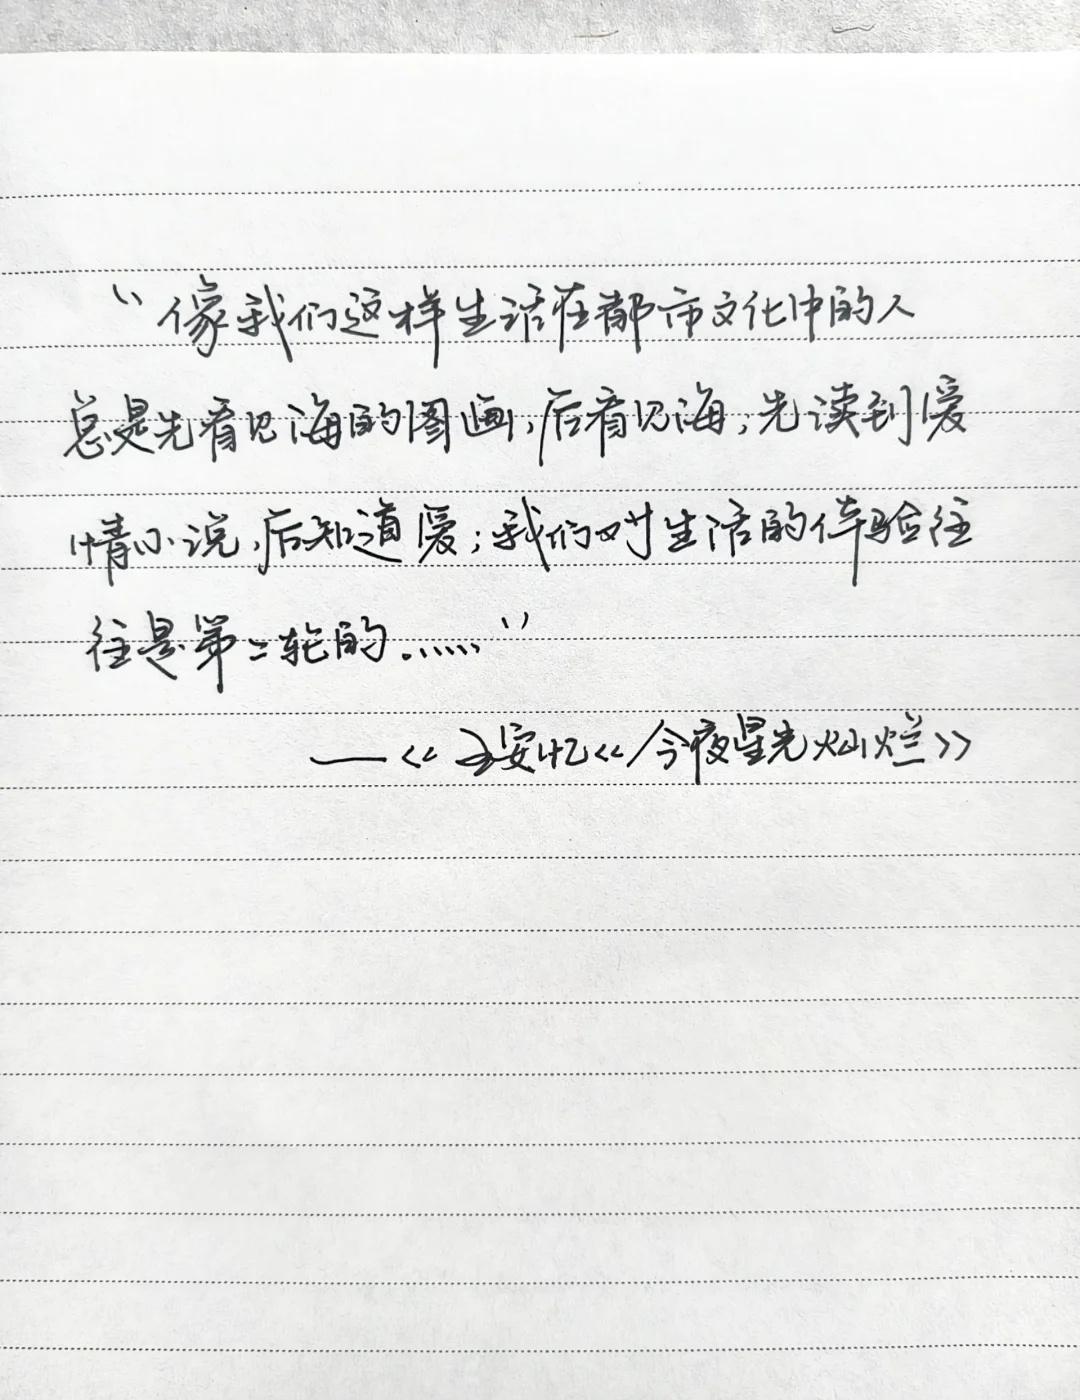 “像我们这样生活在都市文化中的人
总是先看见海的图画,后看见海;先读到爱
情小说,后知道爱;我们对生活的体验往
往是第二轮的......”
—<<王安忆<<今夜星光灿烂>>